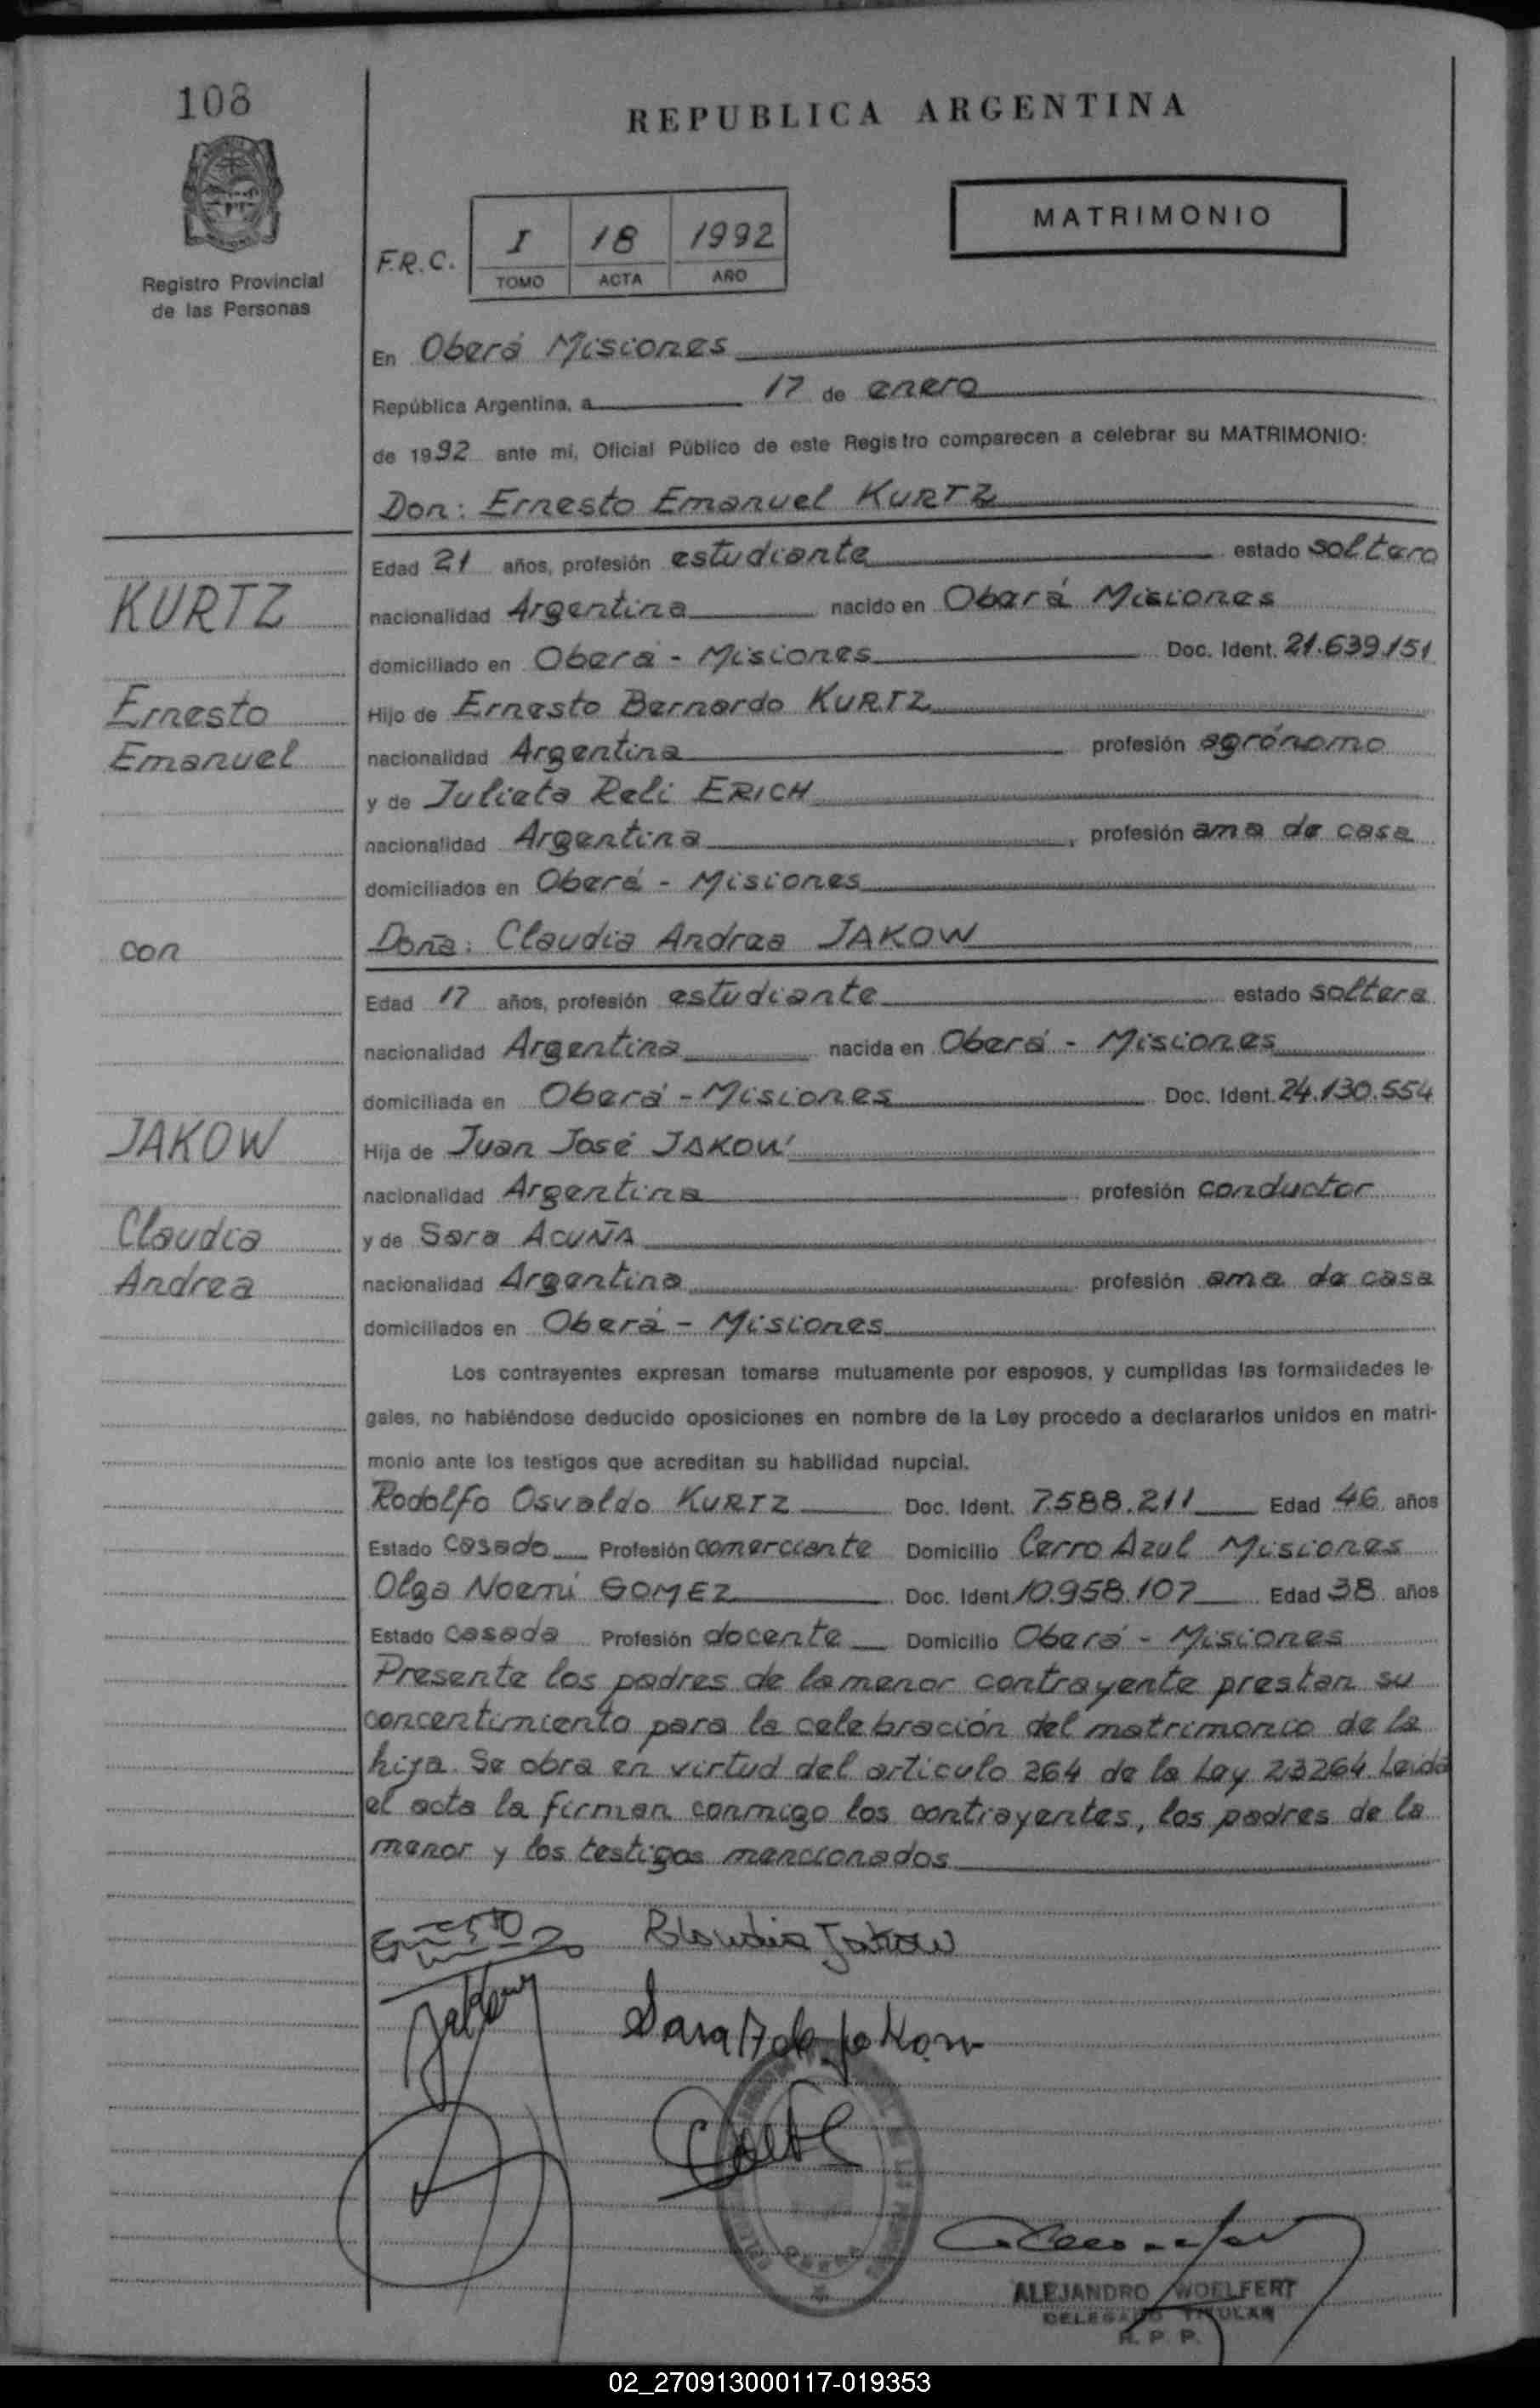 108
REPUBLICA ARGENTINA
MATRIMONIO
Registro Provincial
de las Personas
F.R.C. I 18 1992
TOMO ACTA AÑO
En Oberá Misiones
República Argentina, a 17 de enero
de 1992 ante mi, Oficial Público de este Registro comparecen a celebrar su MATRIMONIO:
Don: Ernesto Emanuel KURTZ
Edad 21 años, profesión estudiante estado soltero
KURTZ
nacionalidad Argentina nacido en Oberá Misiones
domiciliado en Oberá - Misiones Doc. Ident. 21.639.151
Ernesto
Hijo de Ernesto Bernardo KURTZ
Emanuel
nacionalidad Argentina profesión agrónomo
y de Julieta Reli ERICH
nacionalidad Argentina, profesión ama de casa
domiciliados en Oberá - Misiones
con
Doña: Claudia Andrea JAKOW
Edad 17 años, profesión estudiante estado soltera
nacionalidad Argentina nacida en Oberá - Misiones
domiciliada en Oberá - Misiones Doc. Ident. 24.130.554
JAKOW
Hija de Juan José JAKOW
nacionalidad Argentina profesión conductor
Claudia
y de Sara ACUÑA
Andrea
nacionalidad Argentina profesión ama de casa
domiciliados en Oberá - Misiones
Los contrayentes expresan tomarse mutuamente por esposos, y cumplidas las formalidades le-
gales, no habiéndose deducido oposiciones en nombre de la Ley procedo a declararlos unidos en matri-
monio ante los testigos que acreditan su habilidad nupcial.
Rodolfo Osvaldo KURTZ Doc. Ident. 7.588.211 Edad 46 años
Estado casado Profesión comerciante Domicilio Cerro Azul Misiones
Olga Noemí GOMEZ Doc. Ident 10.958.107 Edad 38 años
Estado casada Profesión docente Domicilio Oberá - Misiones
Presente los padres de la menor contrayente prestan su
concentimiento para la celebración del matrimonio de la
hija. Se obra en virtud del articulo 264 de la Ley 23264. Leida
el acta la firman conmigo los contrayentes, los padres de la
menor y los testigos mencionados
Claudia Jakow
Sara A de Jakow
ALEJANDRO WOELFERT
DELEGADO TITULAR
R. P. P.
02_270913000117-019353